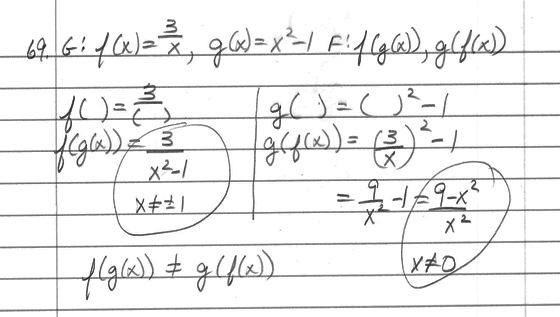 69. G: f(x) = 3/x, g(x) = x² - 1 F: f(g(x)), g(f(x))
f( ) = 3/( )
f(g(x)) = 3/(x² - 1)
x ≠ ±1
g( ) = ( )² - 1
g(f(x)) = (3/x)² - 1
= 9/x² - 1 = (9 - x²)/x²
x ≠ 0
f(g(x)) ≠ g(f(x))